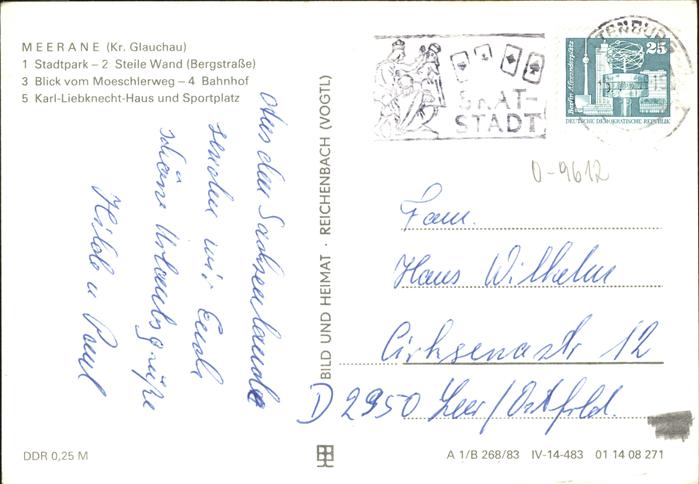 MEERANE (Kr. Glauchau)
1 Stadtpark – 2 Steile Wand (Bergstraße)
3 Blick vom Moeschlerweg – 4 Bahnhof
5 Karl-Liebknecht-Haus und Sportplatz
Aus dem Sachsenlande
senden wir Euch
schöne Urlaubsgrüße
Hilde u Paul
DDR 0,25 M
BILD UND HEIMAT · REICHENBACH (VOGTL)
SKAT-
STADT
TENBURG
25
Berlin, Alexanderplatz
DEUTSCHE DEMOKRATISCHE REPUBLIK
D-9612
Fam.
Hans Wilhelm
Cirksenastr 12
D 2950 Leer/Ostfrld.
A 1/B 268/83 IV-14-483 01 14 08 271